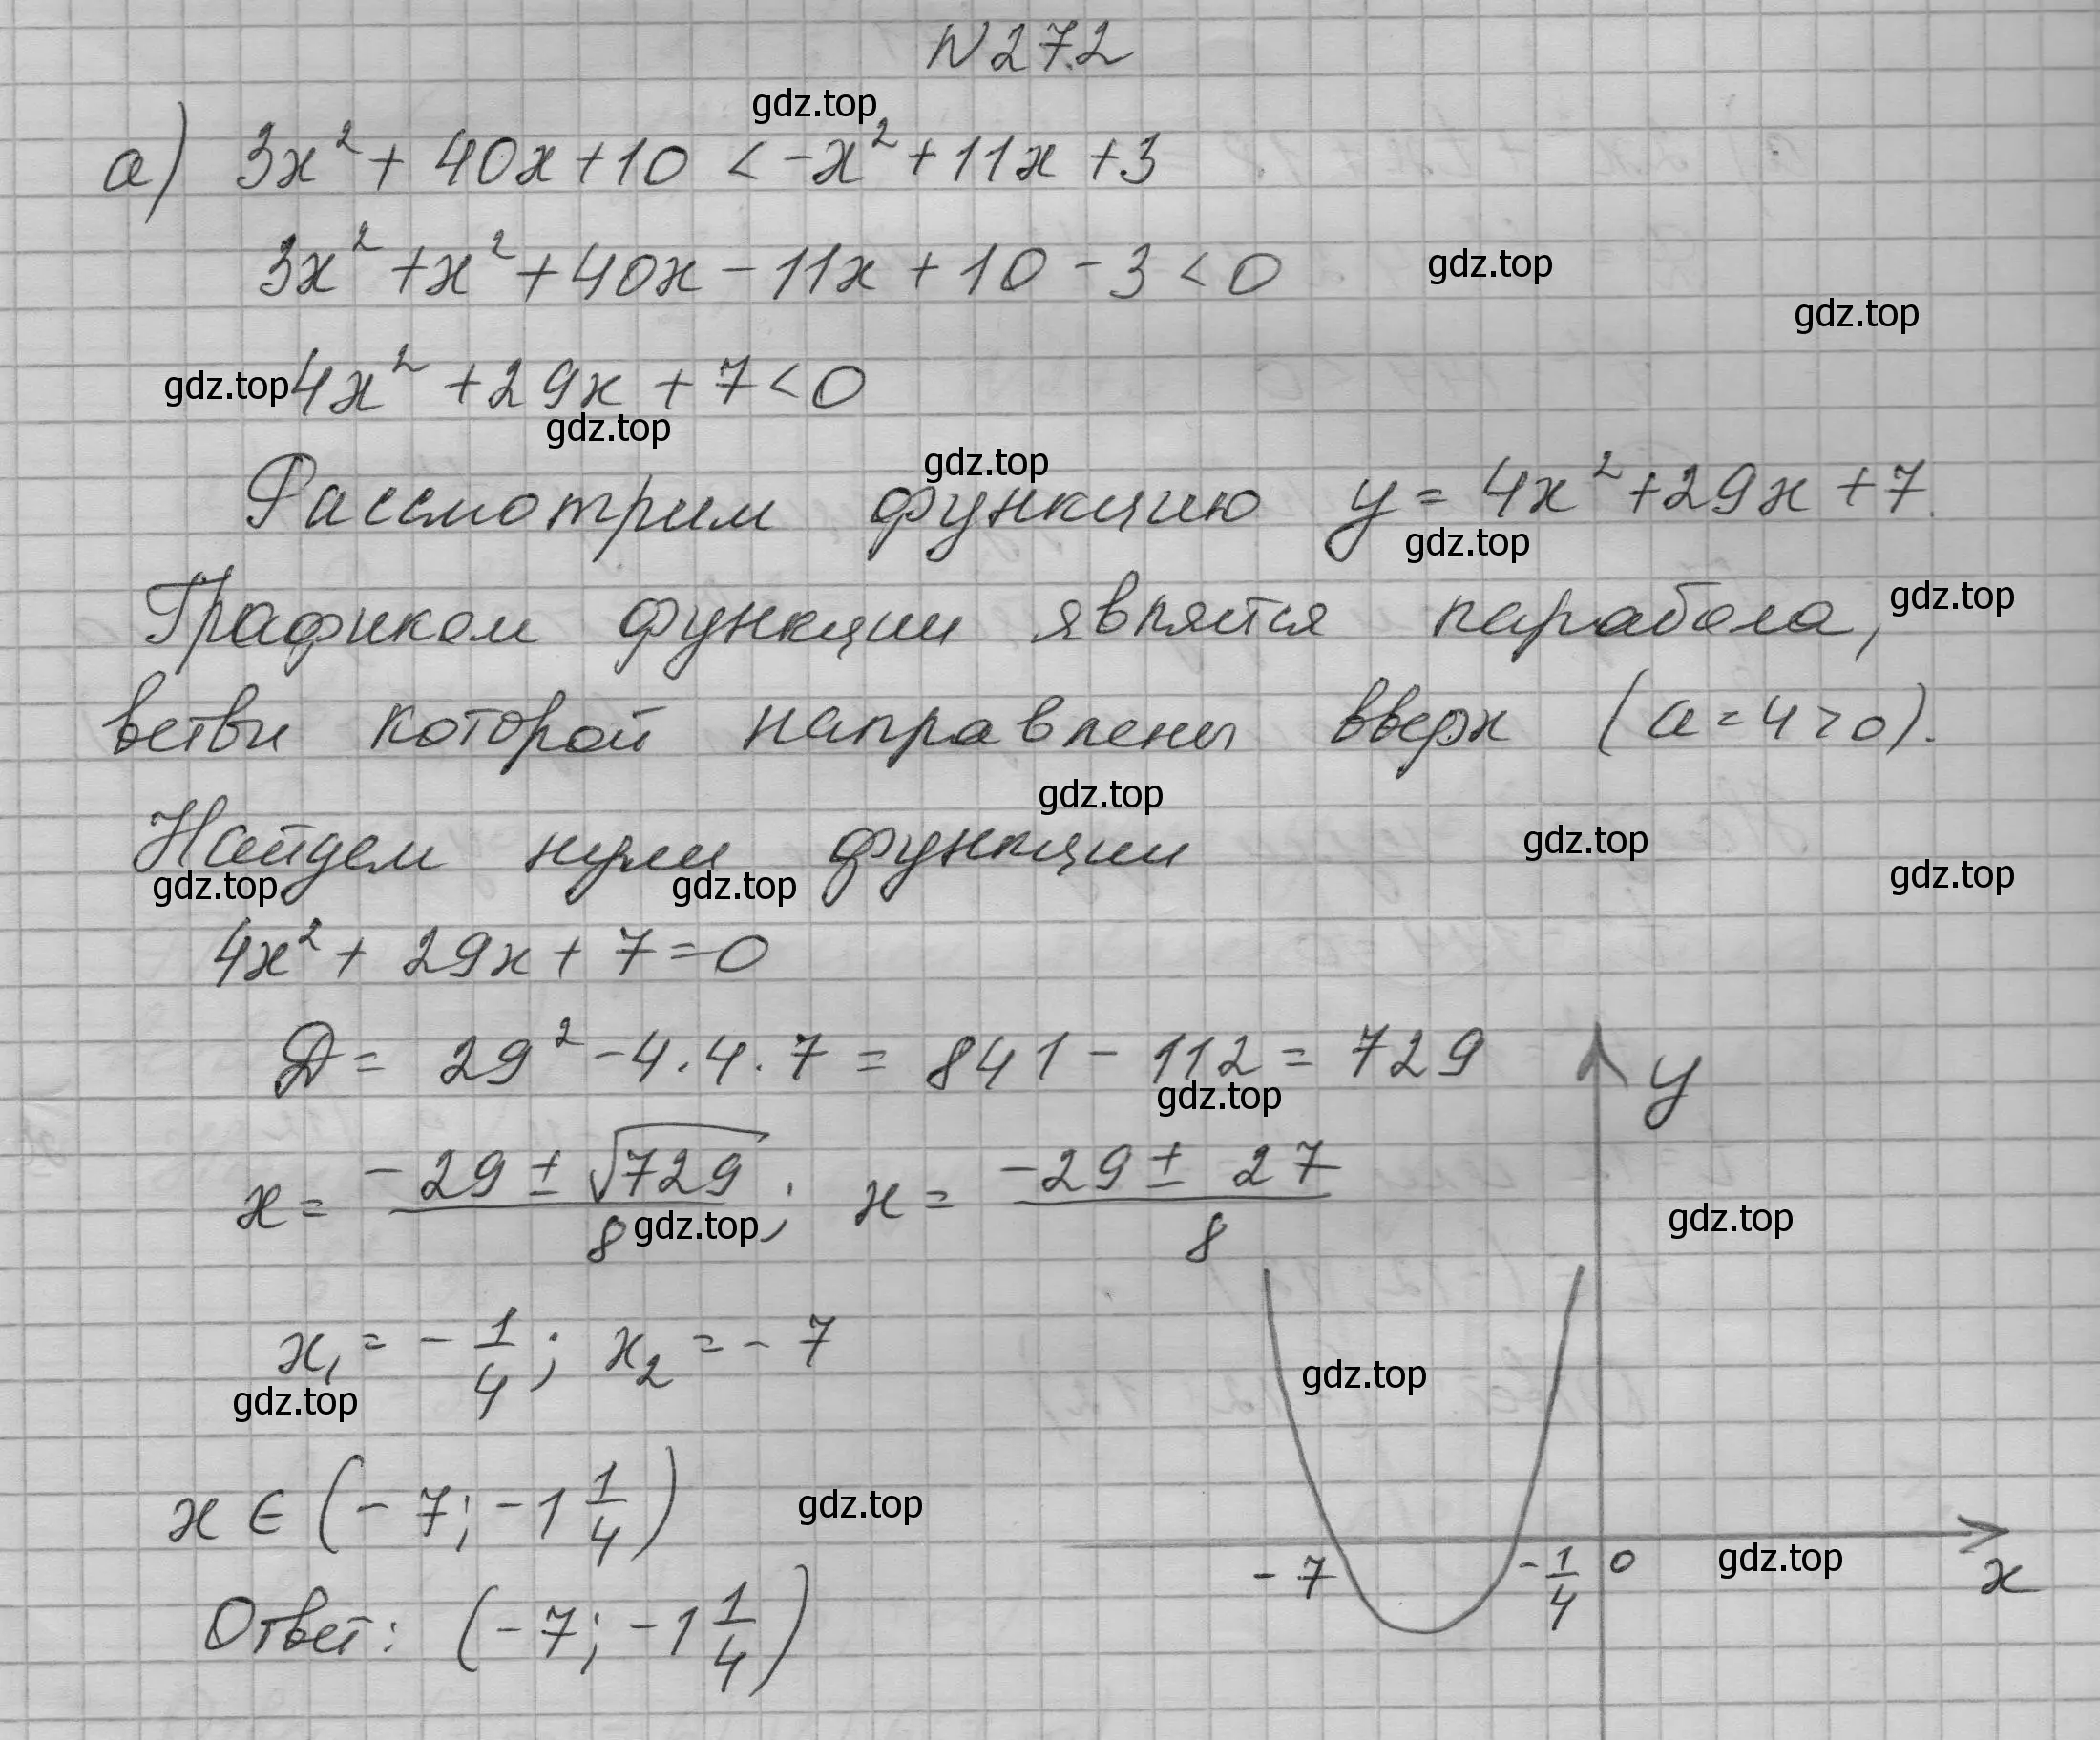 N 272
gdz.top
а) 3x² + 40x + 10 < -x² + 11x + 3
3x² + x² + 40x - 11x + 10 - 3 < 0
gdz.top
gdz.top
gdz.top
4x² + 29x + 7 < 0
gdz.top
gdz.top
Рассмотрим функцию y = 4x² + 29x + 7.
gdz.top
Графиком функции является парабола,
gdz.top
ветви которой направлены вверх (a = 4 > 0).
gdz.top
Найдем нули функции
gdz.top
gdz.top
gdz.top
gdz.top
4x² + 29x + 7 = 0
D = 29² - 4·4·7 = 841 - 112 = 729
gdz.top
y
x = (-29 ± √729)/8; x = (-29 ± 27)/8
gdz.top
gdz.top
x₁ = -1/4; x₂ = -7
gdz.top
gdz.top
x ∈ (-7; -1 1/4)
gdz.top
-7 -1/4 0
gdz.top
x
Ответ: (-7; -1 1/4)